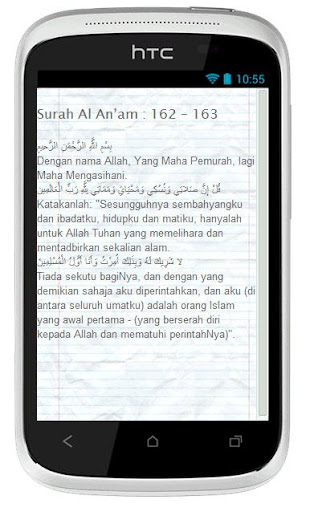 htc
10:55
Surah Al An'am : 162 - 163
بِسْمِ اللَّهِ الرَّحْمَنِ الرَّحِيمِ
Dengan nama Allah, Yang Maha Pemurah, lagi
Maha Mengasihani.
قُلْ إِنَّ صَلَاتِي وَنُسُكِي وَمَحْيَايَ وَمَمَاتِي لِلَّهِ رَبِّ الْعَالَمِينَ
Katakanlah: "Sesungguhnya sembahyangku
dan ibadatku, hidupku dan matiku, hanyalah
untuk Allah Tuhan yang memelihara dan
mentadbirkan sekalian alam.
لا شَرِيكَ لَهُ وَبِذَلِكَ أُمِرْتُ وَأَنَا أَوَّلُ الْمُسْلِمِينَ
Tiada sekutu bagiNya, dan dengan yang
demikian sahaja aku diperintahkan, dan aku (di
antara seluruh umatku) adalah orang Islam
yang awal pertama - (yang berserah diri
kepada Allah dan mematuhi perintahNya)".